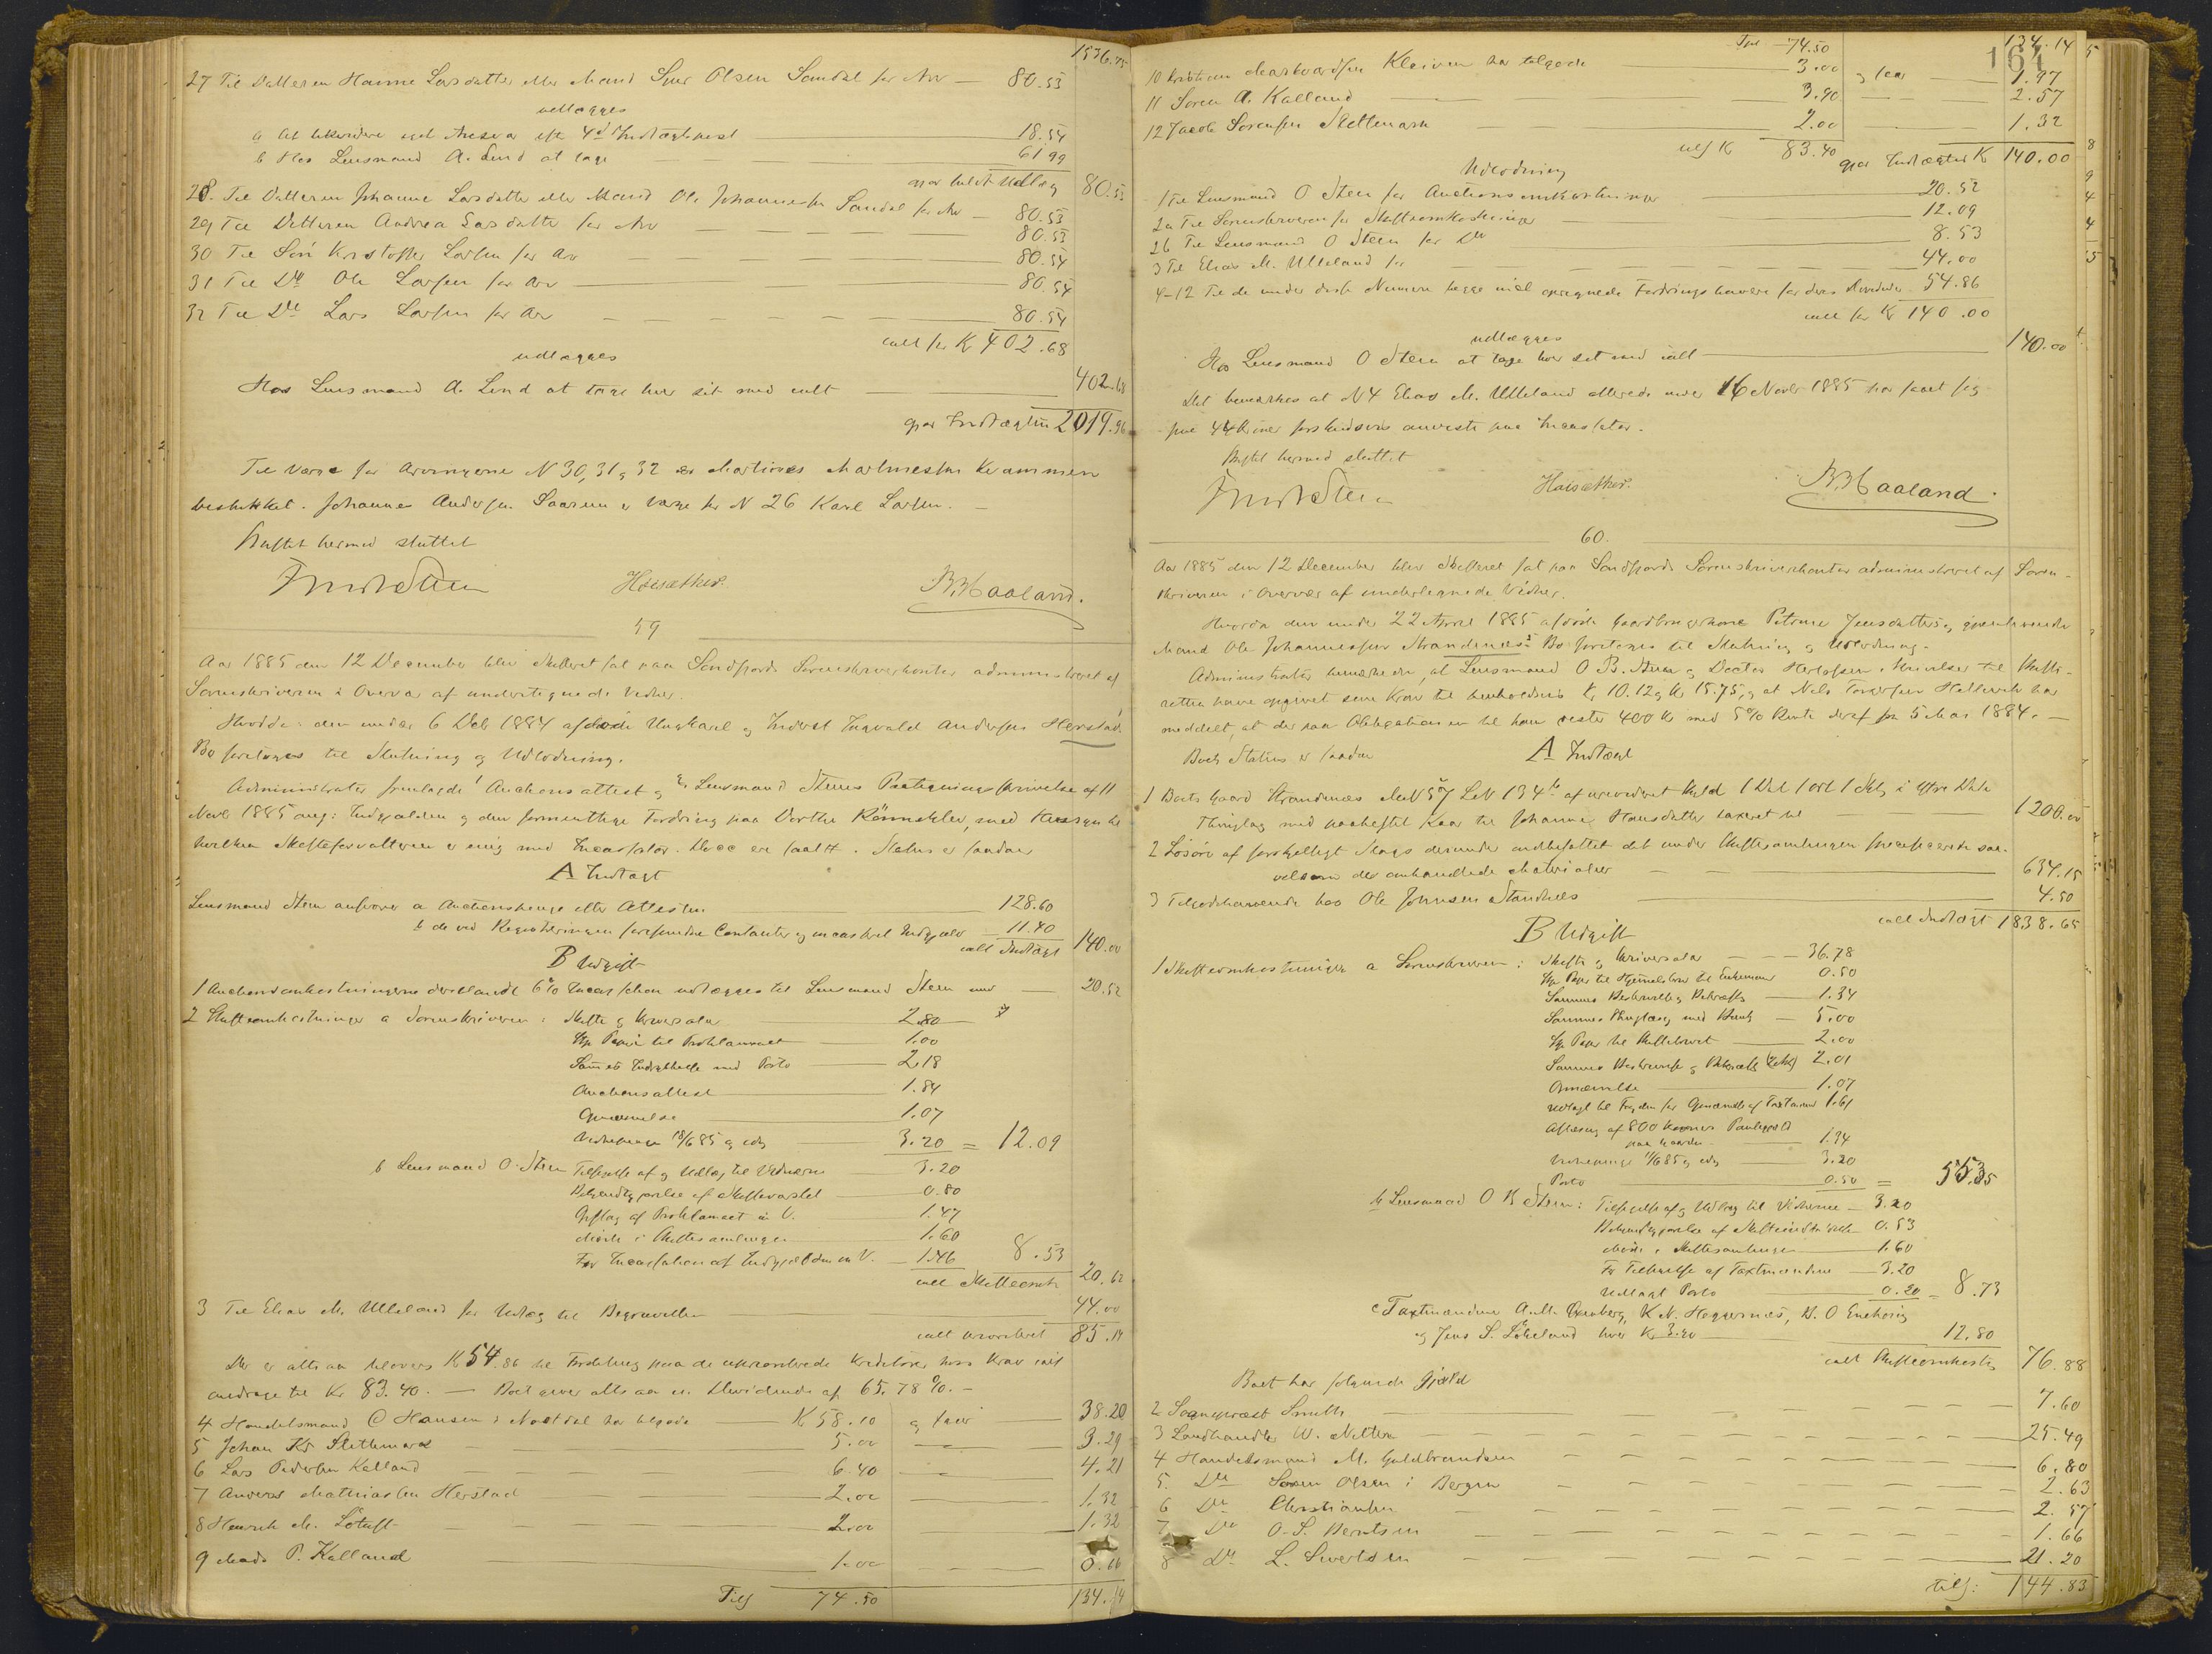 1536.75
27 Til Datteren Hanne Larsdatter eller Mand Sjur Olsen Sandal for Arv — 80.53
udlægges
a At likvidere eget Ansvar efter 4de Indtægtspost 18.54
b Hos Lensmand A. Lind at tage 61.99
gjør heelt Udlæg 80.53
28. Til Datteren Johanne Larsdatter eller Mand Ole Johannessen Sandal for Arv — 80.53
29 Til Datteren Andrea Larsdatter for Arv 80.53
30 Til Søn Kristoffer Larsen for Arv 80.54
31 Til Do Ole Larsen for Arv 80.54
32 Til Do Lars Larsen for Arv 80.54
ialt for Kr 402.68
udlægges
Hos Lensmand A. Lind at tage hver sit med ialt 402.68
gjør Indtægten 2019.96
Til Værge for Arvingerne N 30, 31 & 32 er Martines Martinessen Kvammen
beskikket. Johannes Andersen Saaren er Værge for N 26 Karl Larsen. —
Skiftet hermed sluttet
Haisæther. B. Haaland.
59
Aar 1885 den 12 December blev Skifteret sat paa Søndfjords Sorenskriverkontor administreret af
Sorenskriveren i Overvær af undertegnede Vidner.
Hvorda: den under 6 Deb 1884 afdøde Ungkarl og Inderst Ingvald Andersen Herstads
Bo foretoges til Slutning og Udlodning.
Administrator fremlagde 1 Auctionsattest og 2 Lensmand Steens Skrivelse af 11
Novb 1885 ang: Indgjælden og den formentlige Fordring paa Dorthe Rønneklev, med Hensyn til
hvilken Skifteforvalteren er enig med Incassator. Status er saadan
A Indtægt
Lensmand Steen ansvarer a Auctionspenge efter Attesten 128.60
b de ved Registreringen forefundne Contanter og incasseret Indgjæld — 11.40
ialt Indtægt 140.00
B Udgift
1 Auctionsomkostningerne deriblandt 6% Incassation udlægges til Lensmand Steen med — 20.52
2 Skifteomkostninger a Sorenskriveren: Skifte & Skriversalær 2.80
Stp Papir til Proklamaet 1.00
Samets Indrykkelse med Porto 2.18
Auctionsattest 1.84
Opnævnelse 1.07
Vidnepenge 18/6 85 og idag 3.20 = 12.09
b Lensmand O. Steen Tilsigelse af og Udlæg til Vidnerne 3.20
Bekjendtgjørelse af Skiftevarslet 0.80
Opslag af Proklamaet m V. 1.47
Møde i Skiftesamlinger 1.60
For Incassation af Indgjælden m V. 1.46 8.53
ialt Skifteomk 20.62
3 Til Elias M. Ulleland for Udlæg til Begravelsen 44.00
ialt prioriteret 85.14
Der er altsaa tilovers Kr 54.86 til Fordeling paa de uprioriterede Kreditorer hvis Krav ialt
andrage til Kr 83.40. — Boet giver altsaa en Dividende af 65.78%. —
4 Handelsmand C Hansen i Naustdal har tilgode Kr 58.10 og faar 38.20
5 Johan Kr Slettemark 5.00 — 3.29
6 Lars Pedersen Kalland 6.40 — 4.21
7 Anders Mathiassen Herstad 2.00 — 1.32
8 Henrik M. Løtuft 2.00 — 1.32
9 Mads P. Kalland 1.00 — 0.66
Tils 74.50 134.14
Tpt — 74.50 134.14
164
10 Kristian Markvardsen Kleiven har tilgode 3.00 og faar 1.97
11 Søren A. Kalland 3.90 2.57
12 Jacob Sørensen Slettemark 2.00 1.32
tils Kr 83.40 gjør Indtægten Kr 140.00
Udlodning
1 Til Lensmand O Steen for Auctionsomkostninger 20.52
2a Til Sorenskriveren for Skifteomkostninger 12.09
2b Til Lensmand O Steen for Do 8.53
3 Til Elias M. Ulleland for 44.00
4-12 Til de under disse Numere begge incl opregnede Fordringshavere for deres Dividender 54.86
ialt for Kr 140.00
udlægges
Hos Lensmand O Steen at tage hver sit med ialt 140.00
Det bemærkes at N 4 Elias M. Ulleland allerede under 16 Novbr 1885 har faaet sig
sine 44 Kroner forskudsvis anviste paa Incassator.
Skiftet hermed sluttet
Haisæther. B. Haaland.
60.
Aar 1885 den 12 December blev Skifteret sat paa Søndfjords Sorenskriverkontor administreret af Soren-
skriveren i Overvær af undertegnede Vidner.
Hvorda den under 22 April 1885 afdøde Gaardbrugerkone Petrine Jensdatters og gjenlevende
Mand Ole Johannessen Strandenæs's Bo foretoges til Slutning og Udlodning.
Administrator bemærkede, at Lensmand O B. Steen og Doctor Herlofsen i Skrivelser til Skifte-
retten have opgivet sine Krav til henholdsvis Kr 10.12 og Kr 15.75, og at Nils Torgersen Hellevik har
meddelt, at der paa Obligationen til ham rester 400 Kr med 5% Rente deraf fra 5 Mai 1884. —
Boets Status er saadan
A Indtægt
1 Boets Gaard Strandenæs MN 57 LN 134b af urevideret Skyld 1 Dal 1 ort 1 Skl i Ytre Dale
Thinglag med paaheftet Kaar til Johanne Hansdatter taxeret til 1200.00
2 Løsøre af forskjelligt Slags derunder indbefattet det under Skiftesamlingen specificerede saa-
velsom der omhandlede Materialier 634.15
3 Tilgodehavende hos Ole Johnsen Standnes 4.50
ialt Indtægt 1838.65
B Udgift
1 Skifteomkostninger a Sorenskriveren: Skifte og Skriversalær 36.78
Stp Papir til Hjemmelsbrev til Enkemand 0.50
Sammes Beskrivelse & Bekræft. 1.34
Sammes Thinglæsg med Bevis 5.00
Stp Papir til Skiftebrevet 2.00
Sammes Beskrivelse & Bekræft 2.01
Opnævnelse 1.07
Udlagt til Fogden for Opnævnelse af Taxtmænd 1.61
Aflæsning af 800 Kroners Panteggjæld
paa Gaarden 1.34
Vidnepenge 11/6 85 og idag 3.20
Porto 0.50 = 55.35
b Lensmand O B Steen: Tilsigelse af og Udlæg til Vidnerne — 3.20
Bekjendtgjørelse af Skifteindkaldelse 0.53
Møde i Skiftesamlinger 1.60
For Tilsigelse af Taxtmændene 3.20
Udlagt Porto 0.20 = 8.73
c Taxtmændene A. M. Oxenberg, K. N. Heggernæs, B. O Enehaug
og Jens S. Løkeland hver Kr 3.20 12.80
ialt Skifteomkostg 76.88
Boet har følgende Gjæld
2 Sogneprest Smith 7.60
3 Landhandler W. Nitter 25.49
4 Handelsmand M. Guldbrandsen 6.80
5. Do Søren Olsen i Bergen 2.63
6 Do Christiansen 2.57
7 Do O. S. Berntsen 1.66
8 Do L. Sivertsen 21.20
tils: 144.83